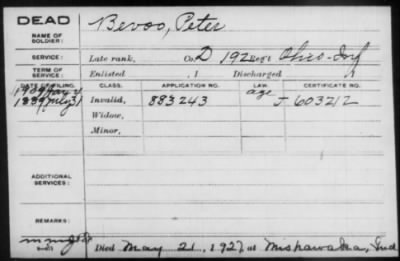 DEAD
NAME OF SOLDIER: Bevoo, Peter
SERVICE: Late rank, Co. D 192 Reg't Ohio Inf
TERM OF SERVICE: Enlisted , 1 Discharged , 1
DATE OF FILING. CLASS. APPLICATION NO. LAW. CERTIFICATE NO.
1889 July 31 Invalid, 883243 age J 603212
Widow,
Minor,
ADDITIONAL SERVICES:
REMARKS:
Died May 21, 1927 at Mishawaka, Ind